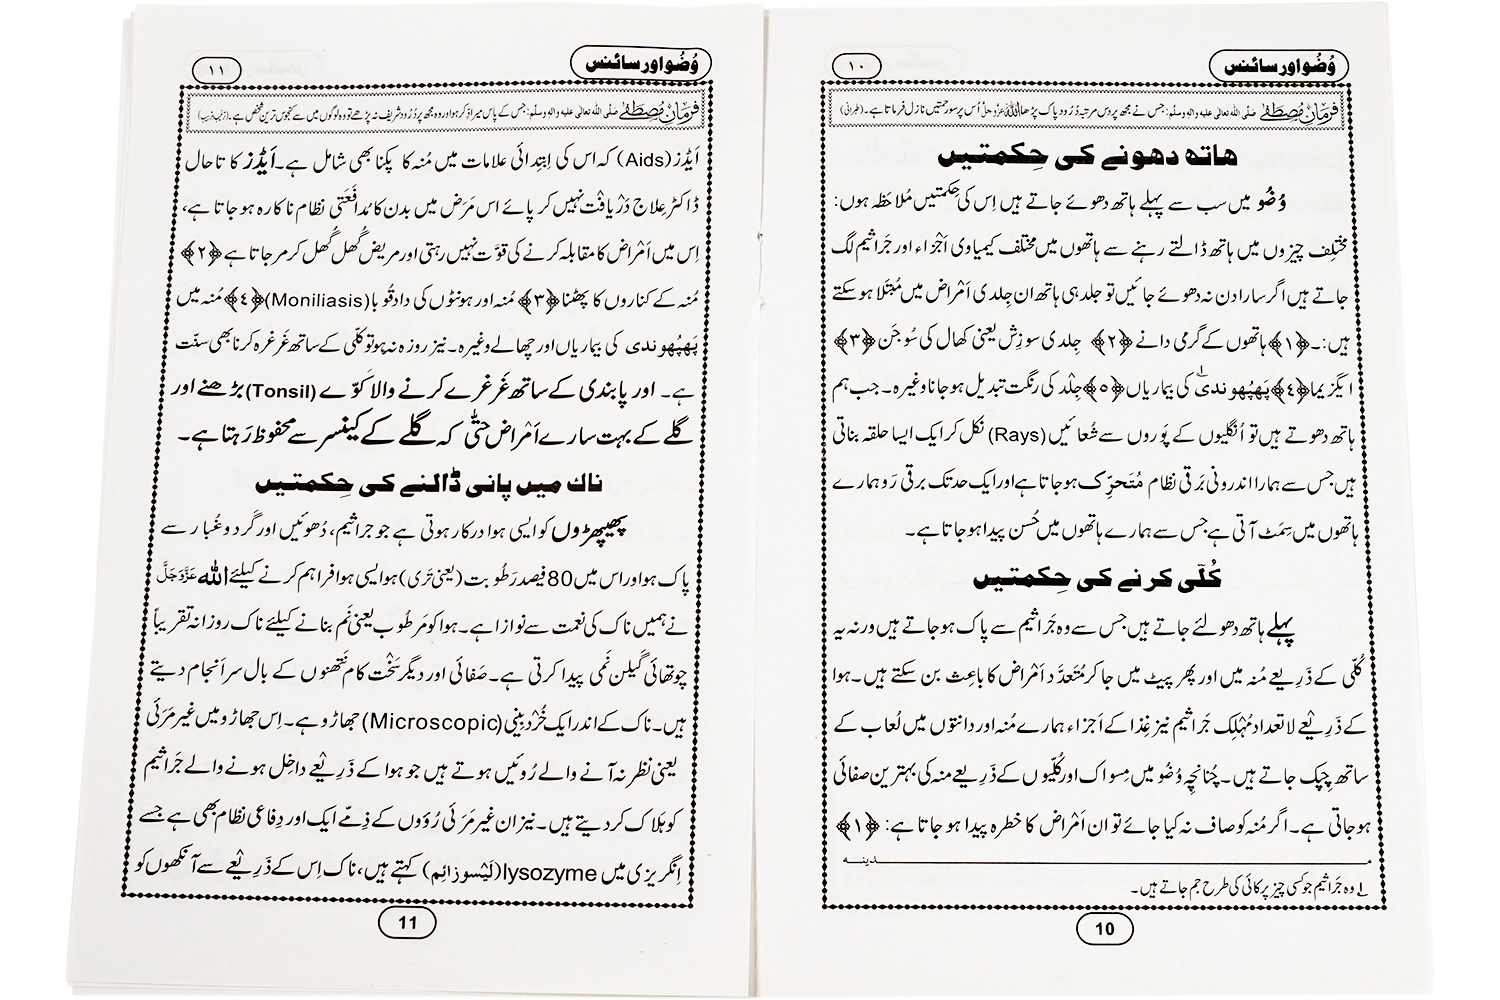 وُضُو اور سائنس
١٠
فرمانِ مصطَفٰے صلی اللہ تعالٰی علیہ والہ وسلم: جس نے مجھ پر دس مرتبہ دُرُود پاک پڑھا اللہ عزوجل اُس پر سو رحمتیں نازل فرماتا ہے۔ (طبرانی)
ہاتھ دھونے کی حِکمتیں
وُضُو میں سب سے پہلے ہاتھ دھوئے جاتے ہیں اِس کی حکمتیں مُلاحَظہ ہوں:
مختلِف چیزوں میں ہاتھ ڈالتے رہنے سے ہاتھوں میں مختلف کیمیاوی اَجْزاء اور جَراثیم لگ
جاتے ہیں اگر سارا دن نہ دھوئے جائیں تو جلد ہی ہاتھ ان جِلدی اَمْراض میں مُبْتَلا ہو سکتے
ہیں:۔ ﴿١﴾ ہاتھوں کے گرمی دانے ﴿٢﴾ جِلدی سوزِش یعنی کھال کی سُوجَن ﴿٣﴾
ایگزیما ﴿٤﴾ پَھپُھوندی ۱ کی بیماریاں ﴿٥﴾ جِلْد کی رنگت تبدیل ہو جانا وغیرہ۔ جب ہم
ہاتھ دھوتے ہیں تو اُنگلیوں کے پَوروں سے شُعائیں (Rays) نکل کر ایک ایسا حلقہ بناتی
ہیں جس سے ہمارا اندرونی بَرقی نظام مُتَحرِّک ہو جاتا ہے اور ایک حد تک برقی رَو ہمارے
ہاتھوں میں سِمَٹ آتی ہے جس سے ہمارے ہاتھوں میں حُسن پیدا ہو جاتا ہے۔
کُلّی کرنے کی حِکمتیں
پہلے ہاتھ دھو لئے جاتے ہیں جس سے وہ جَراثیم سے پاک ہو جاتے ہیں ورنہ یہ
کُلّی کے ذَرِیعے مُنہ میں اور پھر پیٹ میں جا کر مُتَعدَّد اَمْراض کا باعِث بن سکتے ہیں۔ ہوا
کے ذَرِیْعے لا تعداد مُہْلِک جَراثیم نیز غِذا کے اَجزاء ہمارے مُنہ اور دانتوں میں لُعاب کے
ساتھ چِپک جاتے ہیں۔ چُنانچِہ وُضُو میں مِسواک اور کُلّیوں کے ذَرِیعے منہ کی بہترین صفائی
ہو جاتی ہے۔ اگر مُنہ کو صاف نہ کیا جائے تو ان اَمْراض کا خطرہ پیدا ہو جاتا ہے: ﴿١﴾
مدینہ
۱ وہ جَراثیم جو کسی چیز پر کائی کی طرح جم جاتے ہیں۔
10
وُضُو اور سائنس
١١
فرمانِ مصطَفٰے صلی اللہ تعالٰی علیہ والہ وسلم: جس کے پاس میرا ذکر ہو اور وہ مجھ پر دُرُود شریف نہ پڑھے تو وہ لوگوں میں سے کنجوس ترین شخص ہے۔ (ترغیب ترہیب)
اَیڈز (Aids) کہ اس کی اِبتِدائی علامات میں مُنہ کا پکنا بھی شامل ہے۔ اَیڈز کا تا حال
ڈاکٹر عِلاج دَرْیافْت نہیں کر پائے اس مَرَض میں بدن کا مُدافَعَتی نظام ناکارہ ہو جاتا ہے،
اِس میں اَمْراض کا مقابلہ کرنے کی قوَّت نہیں رہتی اور مریض گُھل گُھل کر مر جاتا ہے ﴿٢﴾
مُنہ کے کناروں کا پھٹنا ﴿٣﴾ مُنہ اور ہونٹوں کی داد قُوبا (Moniliasis) ﴿٤﴾ مُنہ میں
پَھپُھوندی کی بیماریاں اور چھالے وغیرہ۔ نیز روزہ نہ ہو تو کلّی کے ساتھ غَرغَرہ کرنا بھی سنّت
ہے۔ اور پابندی کے ساتھ غَرغرے کرنے والا کوّے (Tonsil) بڑھنے اور
گلے کے بہت سارے اَمْراض حتّٰی کہ گلے کے کینسر سے محفوظ رَہتا ہے۔
ناک میں پانی ڈالنے کی حِکمتیں
پھیپھڑوں کو ایسی ہوا درکار ہوتی ہے جو جراثیم، دُھوئیں اور گَرد و غُبار سے
پاک ہو اور اس میں 80 فیصد رَطُوبت (یعنی تَری) ہو ایسی ہوا فراہم کرنے کیلئے اللہ عَزَّوَجَلَّ
نے ہمیں ناک کی نعمت سے نوازا ہے۔ ہوا کو مَرطُوب یعنی نَم بنانے کیلئے ناک روزانہ تقریباً
چوتھائی گَیلن نَمی پیدا کرتی ہے۔ صَفائی اور دیگر سَخْت کام نتھنوں کے بال سر اَنجام دیتے
ہیں۔ ناک کے اندر ایک خُرْد بِینی (Microscopic) جھاڑو ہے۔ اِس جھاڑو میں غیر مَرَئی
یعنی نظر نہ آنے والے رُوئیں ہوتے ہیں جو ہوا کے ذَرِیْعے داخِل ہونے والے جَراثیم
کو ہَلاک کر دیتے ہیں۔ نیز ان غیر مَرَئی رُؤوں کے ذِمّے ایک اور دِفاعی نظام بھی ہے جسے
اِنگریزی میں lysozyme (لَیْسوزائِم) کہتے ہیں، ناک اِس کے ذَرِیْعے سے آنکھوں کو
11